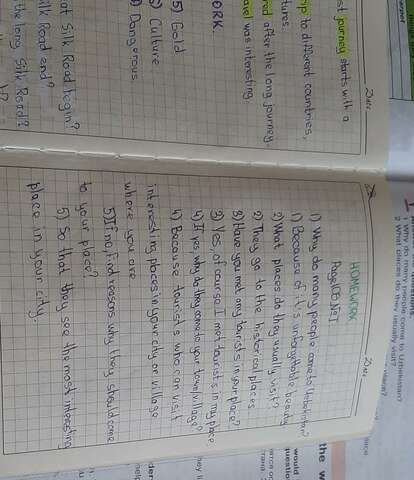 st journey starts with a
ip to different countries,
tures.
red after the long journey.
avel was interesting
ORK
5) Gold
Culture
Dangerous
at Silk Road begin?
ilk Road end?
the long Silk Road?
Date
HOMEWORK
Page 105 №1
1) Why do many people come to Uzbekistan?
1) Because of it's unforgettable beauty
2) What places do they usually visit?
2) They go to the historical places.
3) Have you met any tourists in your place?
3) Yes, of course I met tourists in my place
4) If yes, why do they come to your town/village?
4) Because tourists who can visit
interesting places in your city or village
where you are
5) If no, find reasons why they should come
to your place?
5) So that they see the most interesting
place in your city.
Date
1 Why do many people come to Uzbekistan?
2 What places do they usually visit?
the w
would